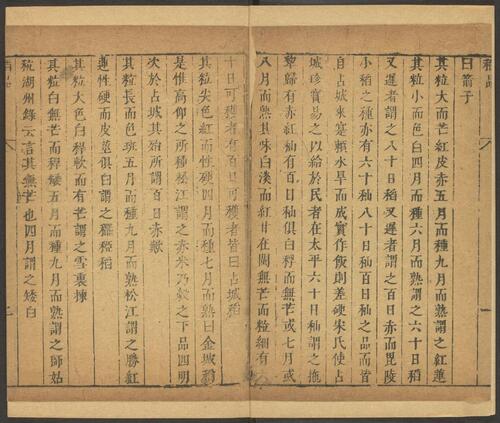 曰箭子
其粒大而芒紅皮赤五月而種九月而熟謂之紅蓮
其粒小而色白四月而種六月而熟謂之六十日稻
又遲者謂之八十日稻又遲者謂之百日赤而毘陵
小稻之種亦有六十日秈八十日秈百日秈之品而皆
自占城來實賴水旱而成實作飯則差硬宋氏使占
城珍寶易之以給於民者在太平六十日秈謂之拖
犂歸有赤紅秈有百日秈俱白稃而無芒或七月或
八月而熟其味白淡而紅甘在閩無芒而粒細有
十日可穫者有百日可穫者皆曰占城稻
其粒尖色紅而性硬四月而種七月而熟曰金城稻
是惟高仰之所種松江謂之赤米乃穀之下品四明
次於占城其殆所謂百日赤歟
其粒長而色斑五月而種九月而熟松江謂之勝紅
蓮性硬而皮莖俱白謂之䆉稏稻
其粒大色白稈軟而有芒謂之雪裏揀
其粒白無芒而稈矮五月而種九月而熟謂之師姑
秔湖州錄云言其無芒也四月謂之矮白